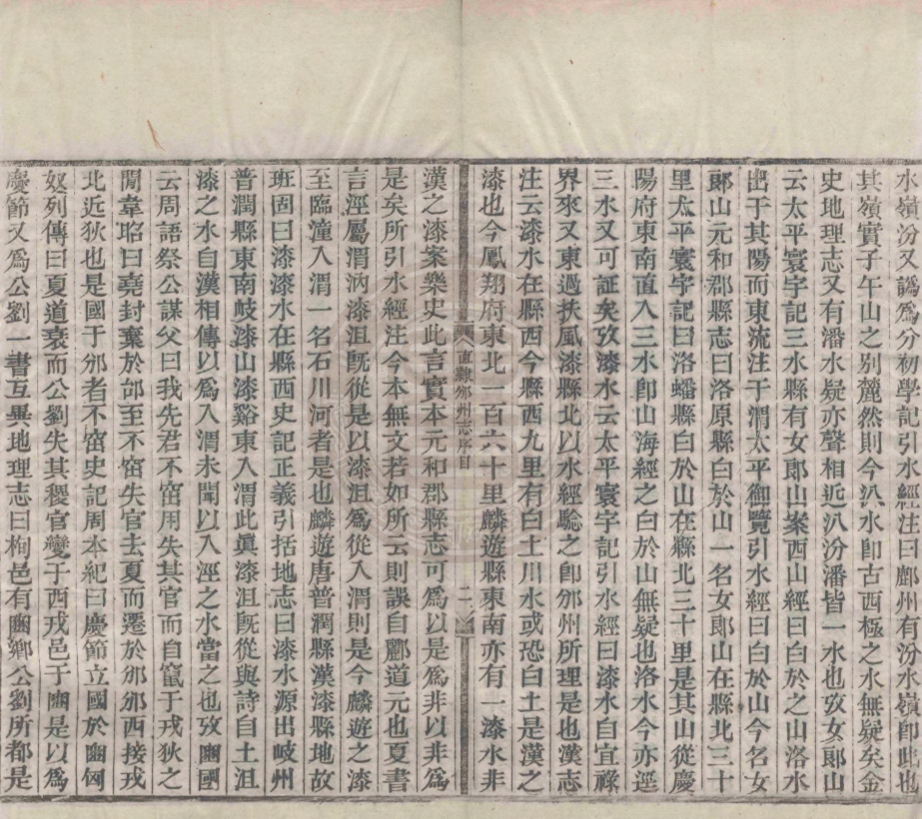 水嶺汾又譌爲分初學記引水經注曰鄜州有汾水嶺即此也
其嶺實子午山之别麓然則今汃水卽古西極之水無疑矣金
史地理志又有潘水疑亦聲相近汃汾潘皆一水也攷女郞山
云太平寰宇記三水縣有女郞山案西山經曰白於之山洛水
出于其陽而東流注于渭太平御覽引水經曰白於山今名女
郞山元和郡縣志曰洛原縣白於山一名女郞山在縣北三十
里太平寰宇記曰洛蟠縣白於山在縣北三十里是其山從慶
陽府東南直入三水卽山海經之白於山無疑也洛水今亦逕
三水又可証矣攷漆水云太平寰宇記引水經曰漆水自宜祿
界來又東過扶風漆縣北以水經騐之卽邠州所理是也漢志
注云漆水在縣西今縣西九里有白土川水或恐白土是漢之
漆也今鳳翔府東北一百六十里麟遊縣東南亦有一漆水非
直隸邠州志序目 二
漢之漆案樂史此言實本元和郡縣志可爲以是爲非以非爲
是矣所引水經注今本無文若如所云則誤自酈道元也夏書
言涇屬渭汭漆沮旣從是以漆沮爲從入渭則是今麟遊之漆
至臨潼入渭一名石川河者是也麟遊唐普潤縣漢漆縣地故
班固曰漆漆水在縣西史記正義引括地志曰漆水源出岐州
普潤縣東南岐漆山漆谿東入渭此眞漆沮旣從與詩自土沮
漆之水自漢相傳以爲入渭未聞以入涇之水當之也攷豳國
云周語祭公謀父曰我先君不窋用失其官而自竄于戎狄之
閒韋昭曰堯封棄於邰至不窋失官去夏而遷於邠邠西接戎
北近狄也是國于邠者不窋史記周本紀曰慶節立國於豳匈
奴列傳曰夏道衰而公劉失其稷官變于西戎邑于豳是以爲
慶節又爲公劉一書互異地理志曰栒邑有豳鄉公劉所都是